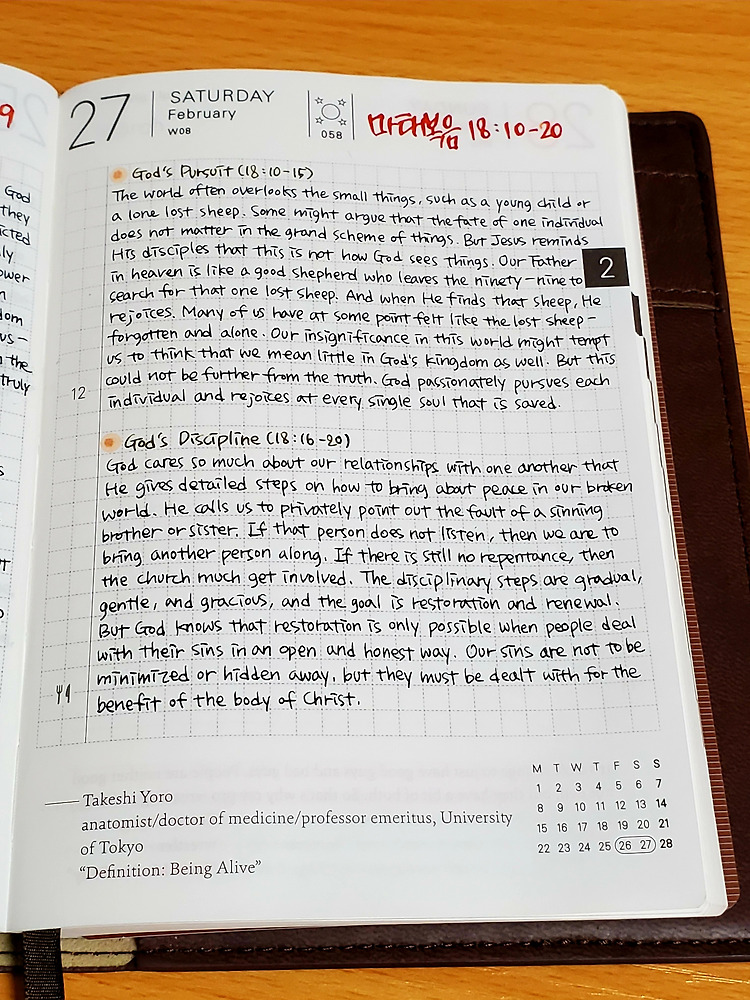 9
God
they
icted
ly.
ower
n
dom
us-
n the
truly
s
27
SATURDAY
February
W08
058
마태복음 18:10-20
God's Pursuit (18:10-15)
The world often overlooks the small things, such as a young child or
a lone lost sheep. Some might argue that the fate of one individual
does not matter in the grand scheme of things. But Jesus reminds
His disciples that this is not how God sees things. Our Father
in heaven is like a good shepherd who leaves the ninety-nine to
search for that one lost sheep. And when He finds that sheep, He
rejoices. Many of us have at some point felt like the lost sheep-
forgotten and alone. Our insignificance in this world might tempt
us to think that we mean little in God's kingdom as well. But this
could not be further from the truth. God passionately pursues each
individual and rejoices at every single soul that is saved.
2
12
God's Discipline (18:16-20)
God cares so much about our relationships with one another that
He gives detailed steps on how to bring about peace in our broken
world. He calls us to privately point out the fault of a sinning
brother or sister. If that person does not listen, then we are to
bring another person along. If there is still no repentance, then
the church much get involved. The disciplinary steps are gradual,
gentle, and gracious, and the goal is restoration and renewal.
But God knows that restoration is only possible when people deal
with their sins in an open and honest way. Our sins are not to be
minimized or hidden away, but they must be dealt with for the
benefit of the body of Christ.
—— Takeshi Yoro
anatomist/doctor of medicine/professor emeritus, University
of Tokyo
“Definition: Being Alive”
M T W T F S S
1 2 3 4 5 6 7
8 9 10 11 12 13 14
15 16 17 18 19 20 21
22 23 24 25 26 27 28